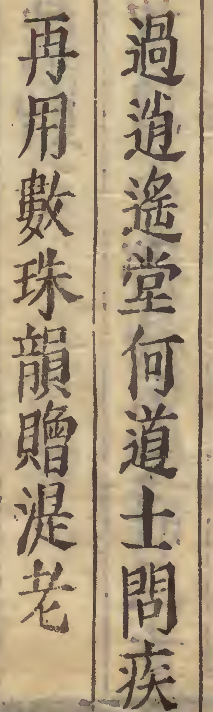 過逍遙堂何道士問疾
再用數珠韻贈湜老